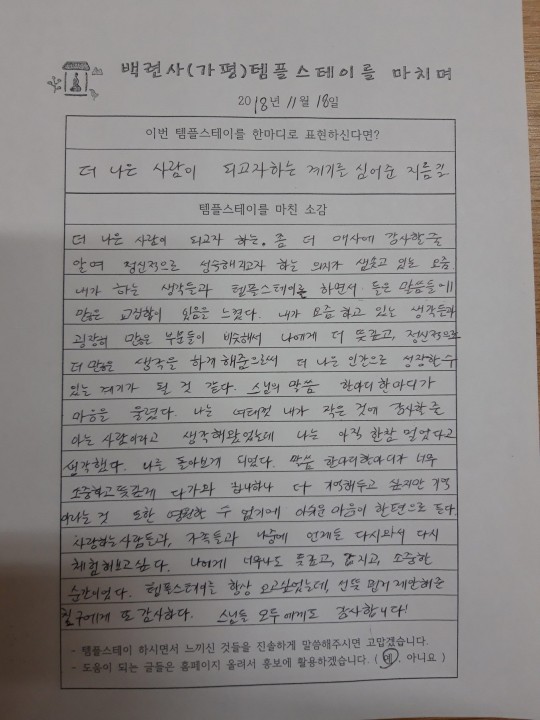 백련사(가평)템플스테이를 마치며
2018년 11월 18일
이번 템플스테이를 한마디로 표현하신다면?
더 나은 사람이 되고자하는 계기를 심어준 지름길
템플스테이를 마친 소감
더 나은 사람이 되고자 하는. 좀 더 매사에 감사할줄
알며 정신적으로 성숙해지고자 하는 의지가 샘솟고 있는 요즘
내가 하는 생각들과 템플스테이를 하면서 들은 말씀들에
많은 교집합이 있음을 느꼈다. 내가 요즘 하고 있는 생각들과
굉장히 많은 부분들이 비슷해서 나에게 더 뜻깊고, 정신적으로
더 많은 생각을 하게 해줌으로써 더 나은 인간으로 성장할 수
있는 계기가 될 것 같다. 스님의 말씀 한마디 한마디가
마음을 울렸다. 나는 여태껏 내가 작은 것에 감사할 줄
아는 사람이라고 생각해왔었는데 나는 아직 한참 멀었다고
생각했다. 나를 돌아보게 되었다. 말씀 한마디한마디가 너무
소중하고 뜻깊게 다가와 하나하나 다 기억해두고 싶지만 기억
이라는 것 또한 영원할 수 없기에 아쉬운 마음이 한편으로 들다.
사랑하는 사람들과, 가족들과 나중에 언제든 다시와서 다시
체험해보고싶다. 나에게 너무나도 뜻깊고, 값지고, 소중한
순간이었다. 템플스테이를 항상 오고싶었는데, 선뜻 먼저 제안해준
친구에게 또 감사하다. 스님들 모두에게도 감사합니다!
- 템플스테이 하시면서 느끼신 것들을 진솔하게 말씀해주시면 고맙겠습니다.
- 도움이 되는 글들은 홈페이지 올려서 홍보에 활용하겠습니다. ( 예, 아니요 )